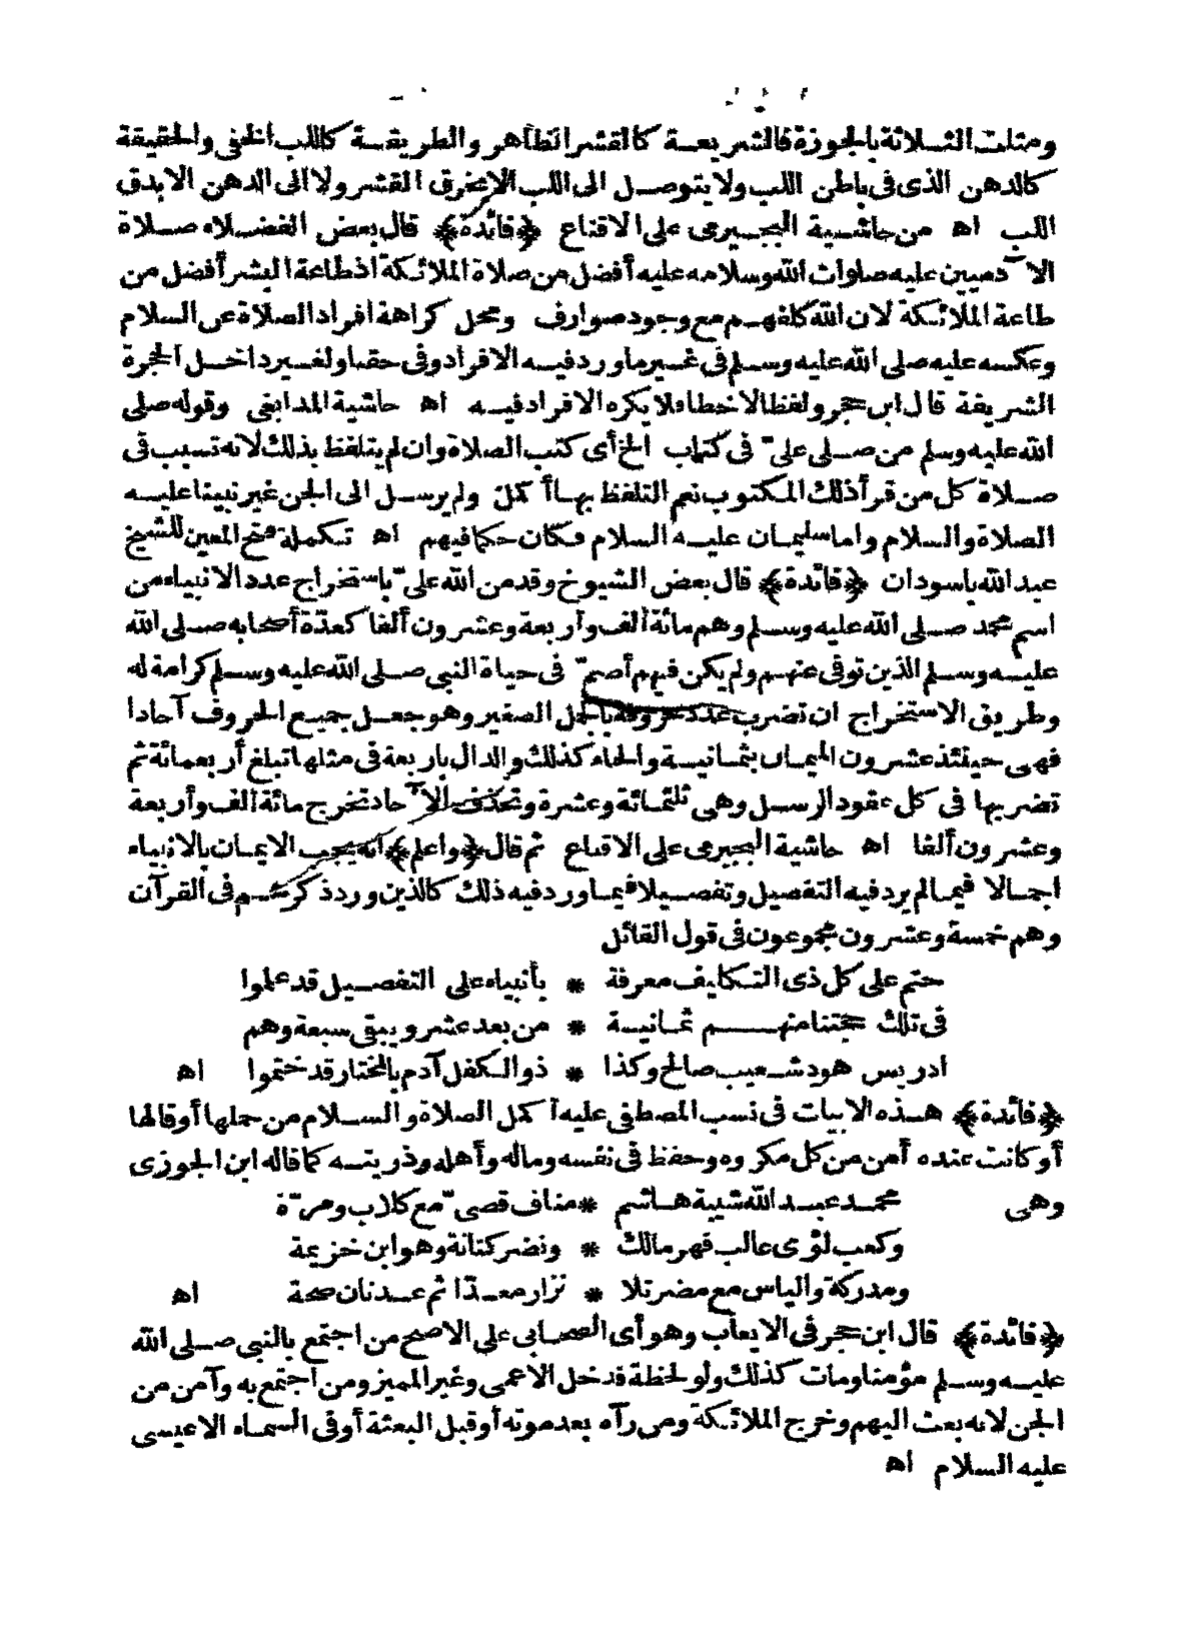 ومثلت الثلاثة بالجوزة فالشريعة كالقشر الظاهر والطريقة كاللب الخفى والحقيقة
كالدهن الذى فى باطن اللب ولا يتوصل الى اللب الا بخرق القشر ولا الى الدهن الا بدق
اللب اه من حاشية البجيرمى على الاقناع ﴿فائدة﴾ قال بعض الفضلاء صلاة
الآدميين عليه صلوات الله وسلامه عليه أفضل من صلاة الملائكة اذ طاعة البشر أفضل من
طاعة الملائكة لان الله كلفهم مع وجود صوارف ومحل كراهة افراد الصلاة عن السلام
وعكسه عليه صلى الله عليه وسلم فى غير ما ورد فيه الافراد وفى حقنا ولغير داخل الحجرة
الشريفة قال ابن حجر ولفظا لا خطا فلا يكره الافراد فيه اه حاشية المدابغى وقوله صلى
الله عليه وسلم من صلى علىّ فى كتاب الخ أى كتب الصلاة وان لم يتلفظ بذلك لانه تسبب فى
صلاة كل من قرأ ذلك المكتوب نعم التلفظ بها أكمل ولم يرسل الى الجن غير نبينا عليه
الصلاة والسلام واما سليمان عليه السلام فكان حكما فيهم اه تكملة فتح المعين للشيخ
عبد الله باسودان ﴿فائدة﴾ قال بعض الشيوخ وقد من الله علىّ باستخراج عدد الانبياء من
اسم محمد صلى الله عليه وسلم وهم مائة ألف وأربعة وعشرون ألفا كعدّة أصحابه صلى الله
عليه وسلم الذين توفى عنهم ولم يكن فيهم أصمّ فى حياة النبى صلى الله عليه وسلم كرامة له
وطريق الاستخراج ان تضرب عدد حروفه بالجمل الصغير وهو جعل جميع الحروف آحادا
فهى حينئذ عشرون الميمان بثمانية والحاء كذلك والدال باربعة فى مثلها تبلغ أربعمائة ثم
تضربها فى كل عقود الرسل وهى ثلثمائة وعشرة وتحذف الآحاد تخرج مائة ألف وأربعة
وعشرون ألفا اه حاشية البجيرمى على الاقناع ثم قال ﴿واعلم﴾ أنه يجب الايمان بالانبياء
اجمالا فيما لم يرد فيه التفصيل وتفصيلا فيما ورد فيه ذلك كالذين ورد ذكرهم فى القرآن
وهم خمسة وعشرون مجموعون فى قول القائل
حتم على كل ذى التكليف معرفة * بأنبياء على التفصيل قد علموا
فى تلك حجتنا منهم ثمانية * من بعد عشر ويبقى سبعة وهم
ادريس هود شعيب صالح وكذا * ذو الكفل آدم بالمختار قد ختموا اه
﴿فائدة﴾ هذه الابيات فى نسب المصطفى عليه أكمل الصلاة والسلام من حملها أو قالها
أو كانت عنده أمن من كل مكروه وحفظ فى نفسه وماله وأهله وذريته كما قاله ابن الجوزى
وهى محمد عبد الله شيبة هاشم * مناف قصىّ مع كلاب ومرّة
وكعب لؤى غالب فهر مالك * ونضر كنانة وهو ابن خزيمة
ومدركة والياس مع مضر تلا * نزار معدّا ثم عدنان صحة اه
﴿فائدة﴾ قال ابن حجر فى الايعاب وهو أى الصحابى على الاصح من اجتمع بالنبى صلى الله
عليه وسلم مؤمنا ومات كذلك ولو لحظة فدخل الاعمى وغير المميز ومن اجتمع به وآمن من
الجن لانه بعث اليهم وخرج الملائكة ومن رآه بعد موته أو قبل البعثة أو فى السماء الا عيسى
عليه السلام اه